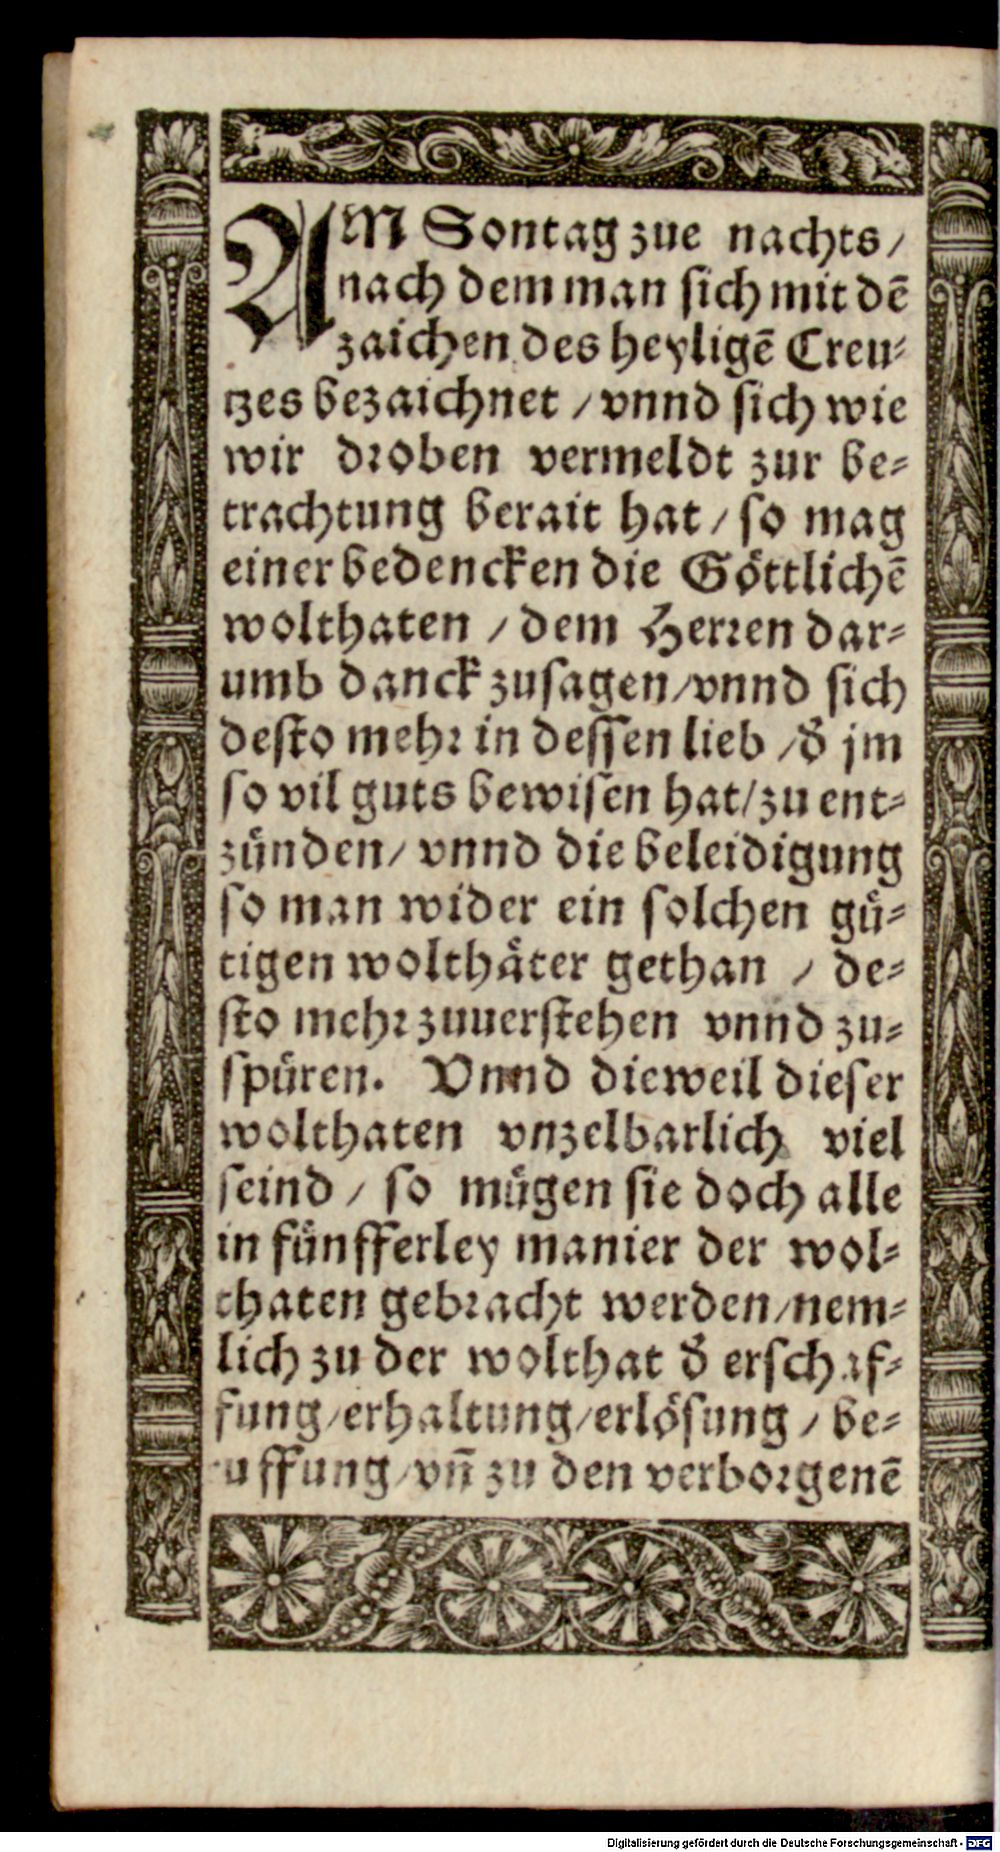 AM Sontag zue nachts /
nach dem man sich mit dē
zaichen des heyligē Creu-
tzes bezaichnet / vnnd sich wie
wir droben vermeldt zur be-
trachtung berait hat / so mag
einer bedencken die Göttlichē
wolthaten / dem Herren dar-
umb danck zusagen / vnnd sich
desto mehr in dessen lieb / d̄ jm
so vil guts bewisen hat / zu ent-
zünden / vnnd die beleidigung
so man wider ein solchen gü-
tigen wolthäter gethan / de-
sto mehr zuuerstehen vnnd zu-
spüren. Vnnd dieweil dieser
wolthaten vnzelbarlich viel
seind / so mügen sie doch alle
in fünfferley manier der wol-
thaten gebracht werden / nem-
lich zu der wolthat d̄ erschaf-
fung / erhaltung / erlösung / be-
ruffung / vn̄ zu den verborgenē
Digitalisierung gefördert durch die Deutsche Forschungsgemeinschaft - DFG